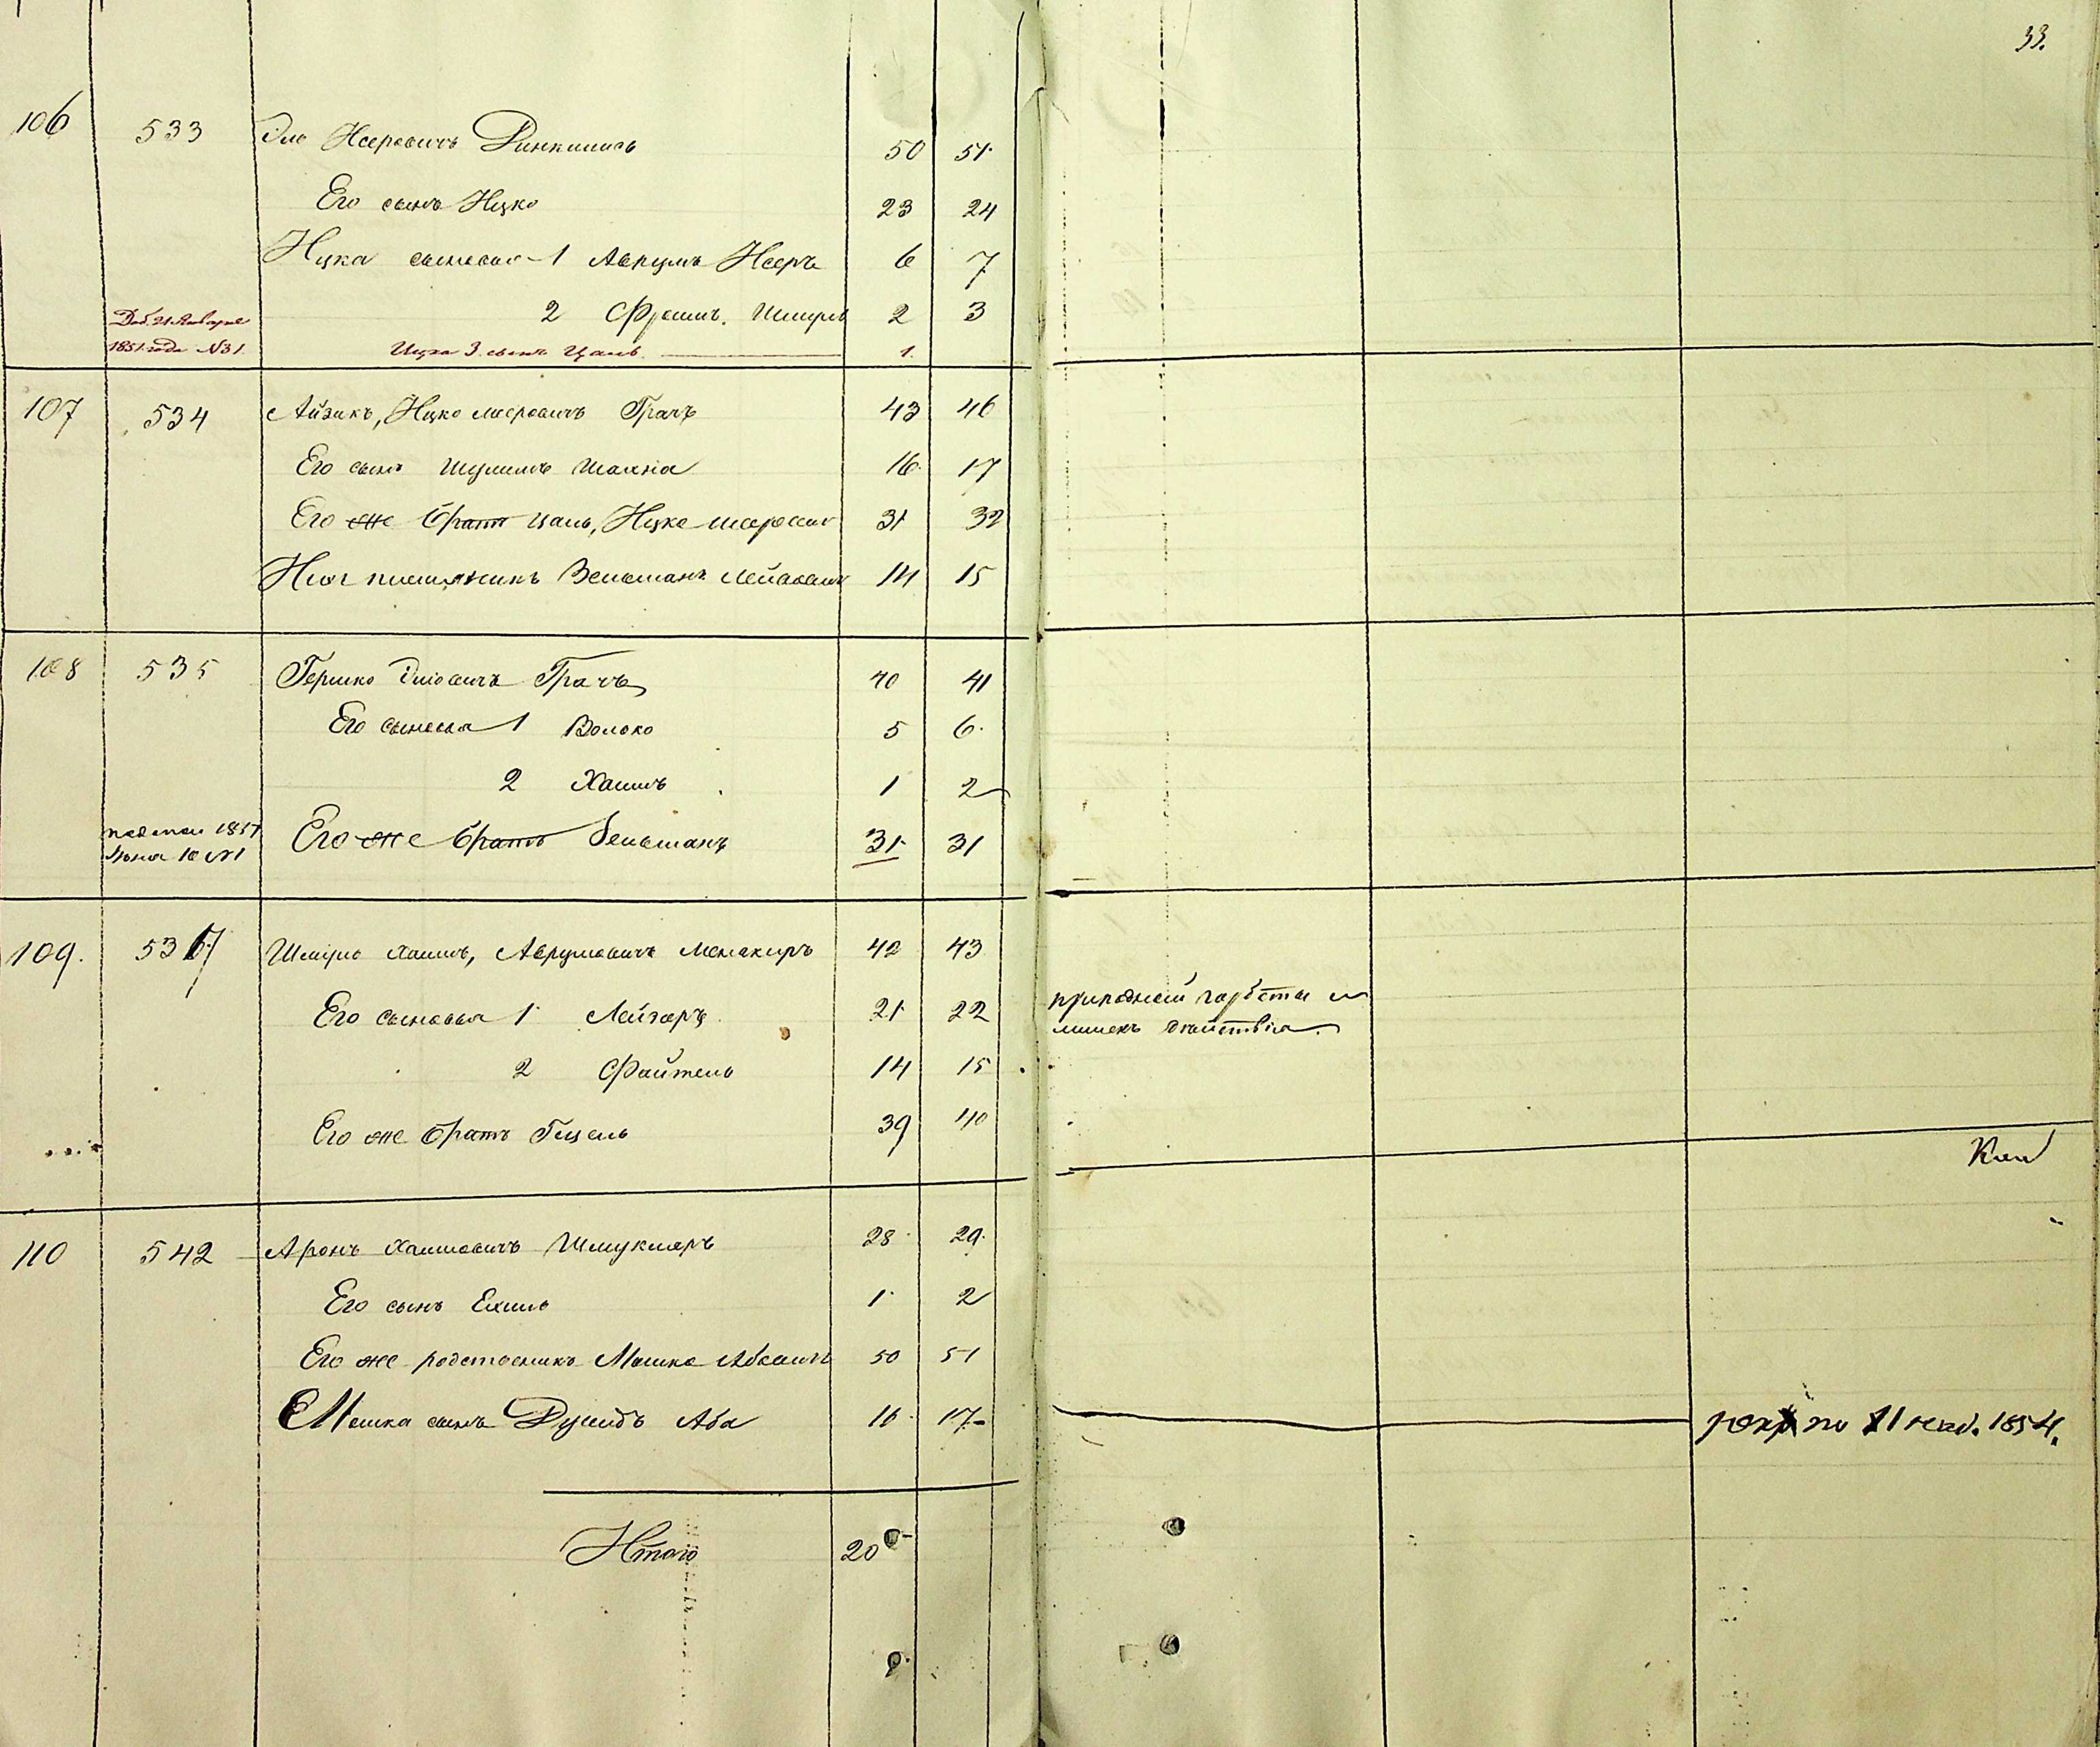 33.
106 533 Эло Исеровичъ Динкинисъ 50 51
Его сынъ Ицко 23 24
Ицка сыновья 1 Аврумъ Исеръ 6 7
2 Фроимъ. Шмуль 2 3
Доб. 21 Января
1851 года №31. Ицка 3. сынъ Цаль. 1.
107 534 Айзикъ, Ицко Меровичъ Грачъ 43 46
Его сынъ Шулимъ Шахна 16 17
Его же братъ Цаль, Ицко 31 32
племянникъ Зельманъ Лейбовичъ 14 15
108 535 Гершко Эліовичъ Грачъ 40 41
Его сыновья 1 Волько 5 6.
2 Хаимъ 1 2
1851
Іюня 10 №1 Его же братъ Зельманъ 31 31
109. 537 Шмуль Хаимъ, Аврумовичъ 42 43
Его сыновья 1 Лейзеръ 21 22
2 Файтель 14 15
Его же братъ Гецель 39 40
110 542 Аронъ Хаимовичъ Шмуклеръ 28 29.
Его сынъ Ехиль 1 2
Его же родственникъ Мошко Абовичъ 50 51
Мошка сынъ Дувидъ Аба 16 17
по 11 1854.
Итого 20